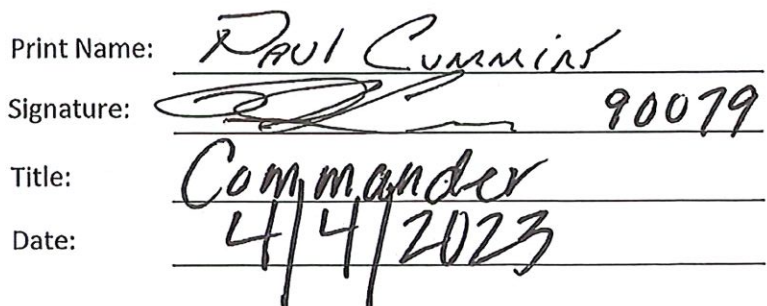 Print Name: Paul Cummins
Signature: 90079
Title: Commander
Date: 4/4/2023